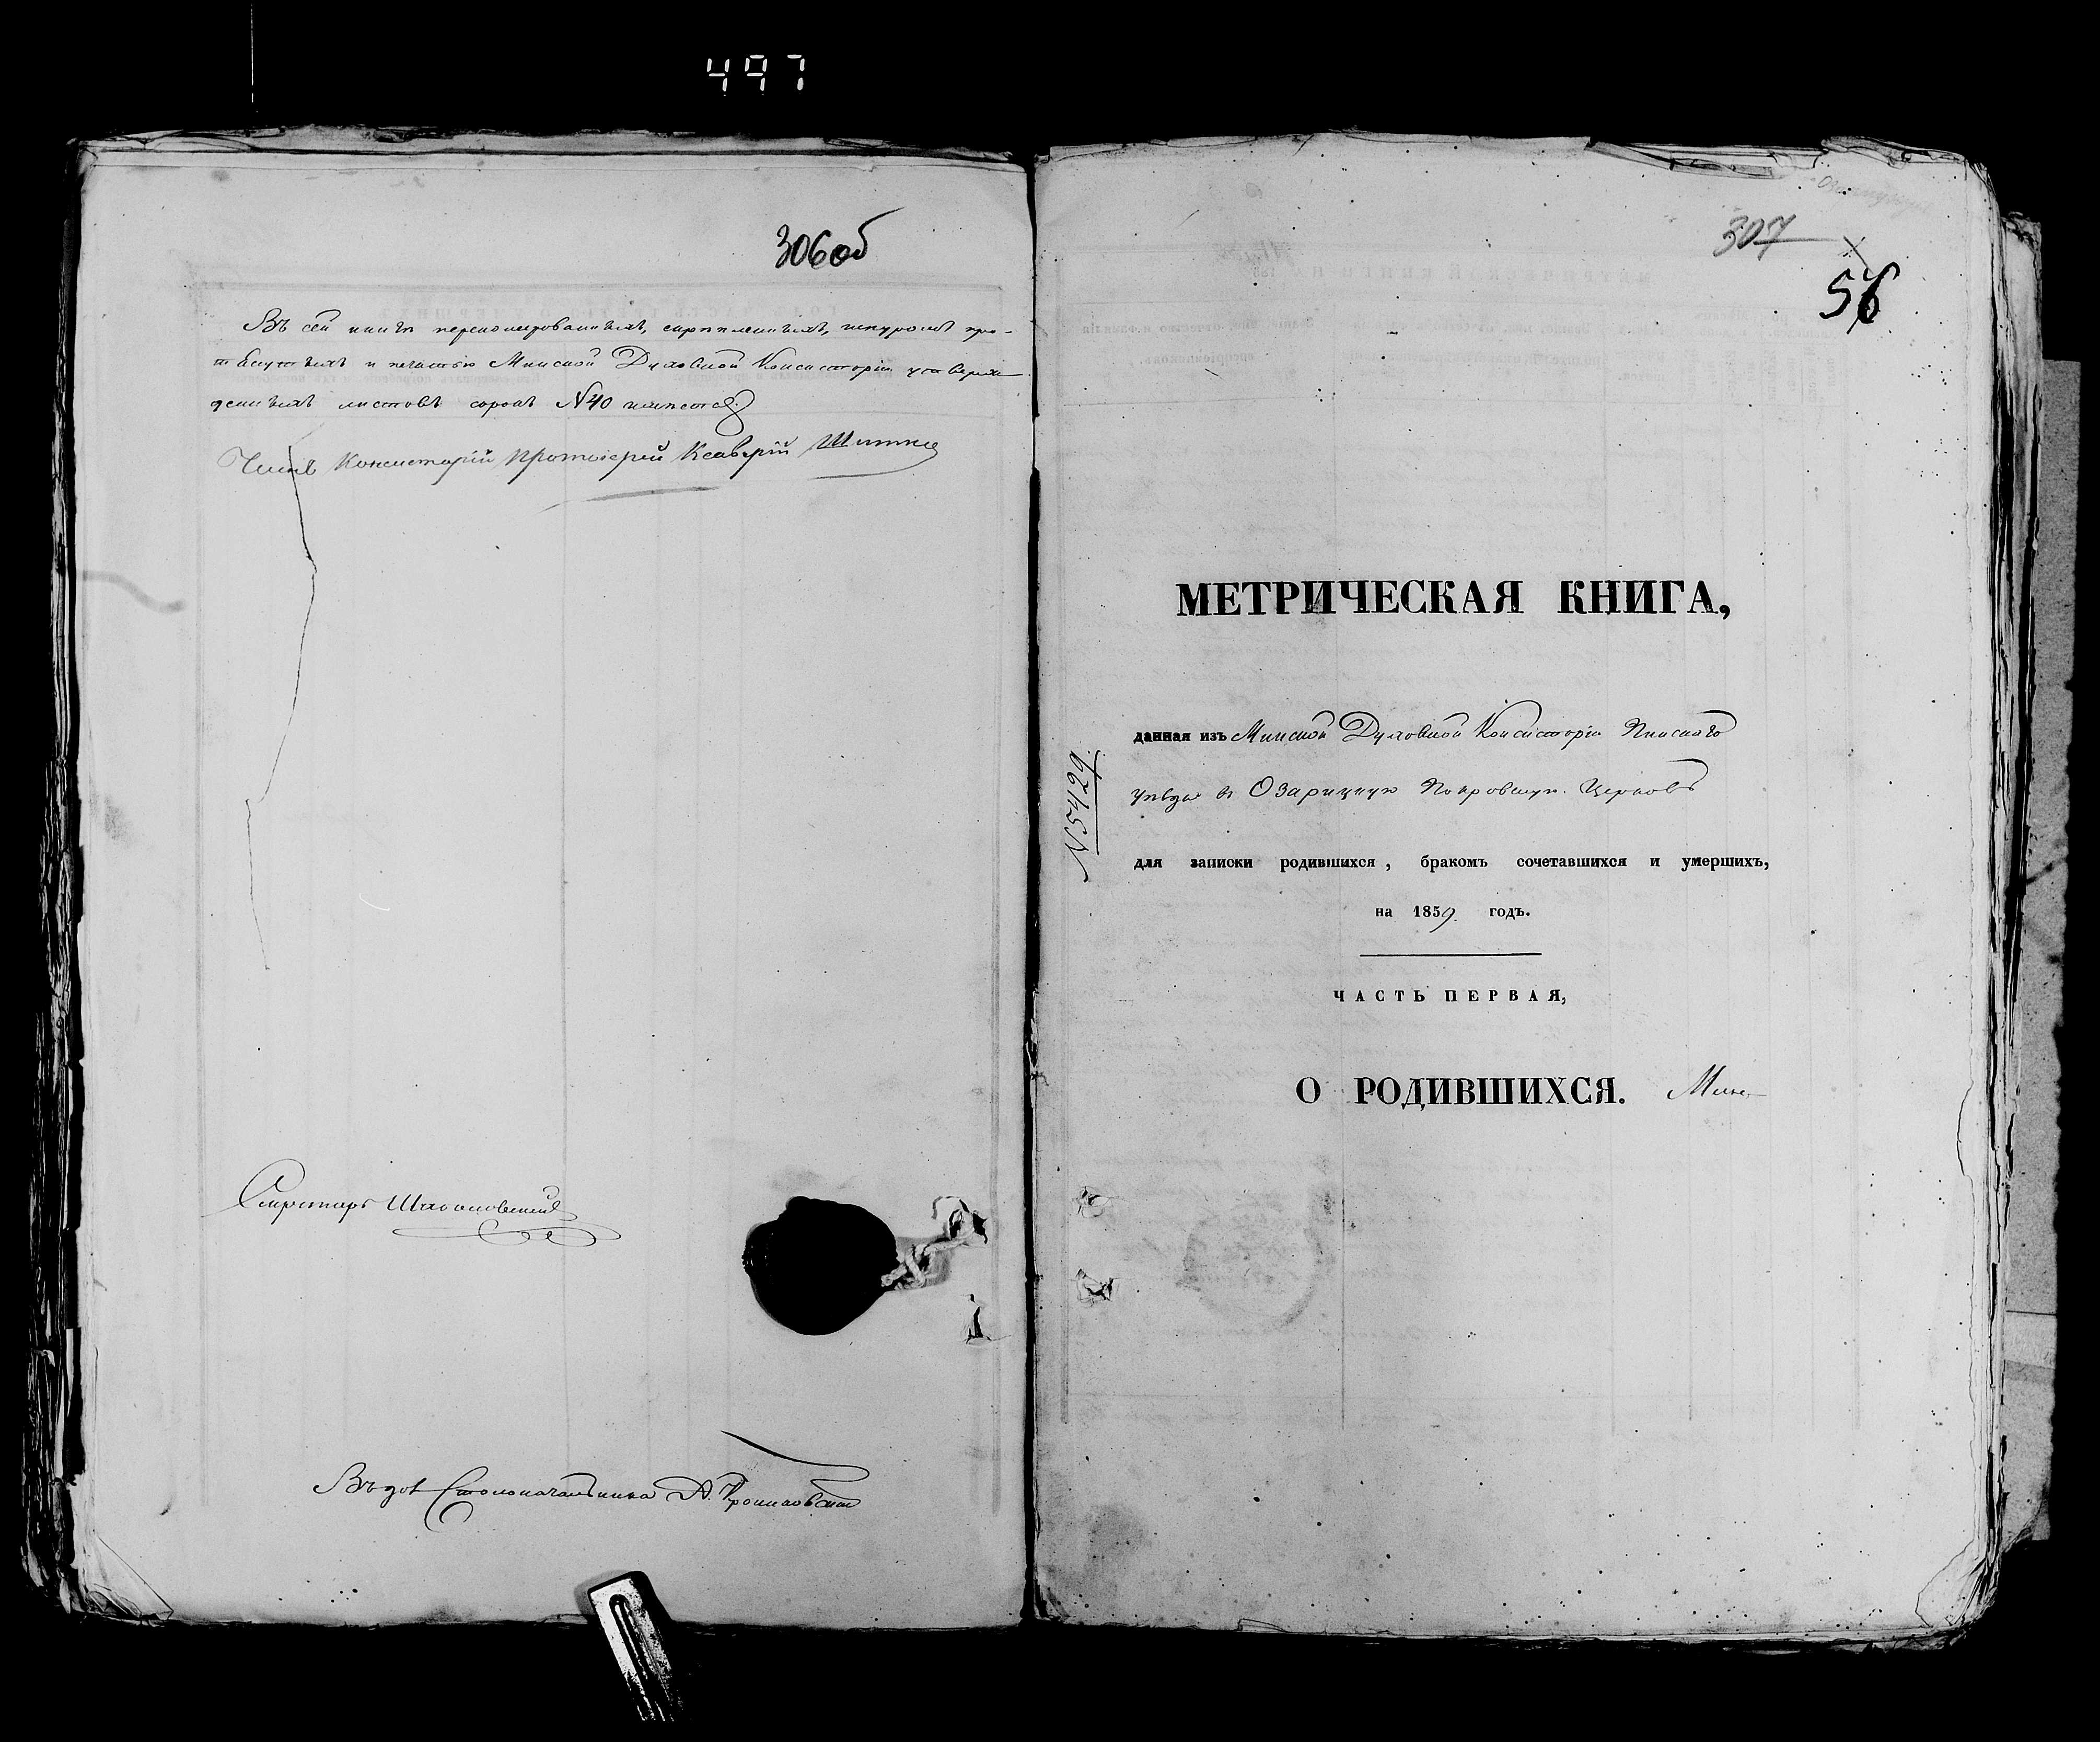 497
306об
Въ сей книгѣ перенумерованныхъ, скрѣпленныхъ, шнуромъ про-
тянутыхъ и печатью Минской Духовной Консисторіи утверж-
денныхъ листовъ сорокъ N40 имѣется
Членъ Консисторіи Протоіерей Ксаверій
Секретарь
Столоначальника А.
307
56
МЕТРИЧЕСКАЯ КНИГА,
данная изъ Минской Духовной Консисторіи Пинскаго
уѣзда въ Озарицкую Покровскую Церковь
N5429
для записки родившихся, бракомъ сочетавшихся и умершихъ,
на 1859 годъ.
ЧАСТЬ ПЕРВАЯ,
О РОДИВШИХСЯ.